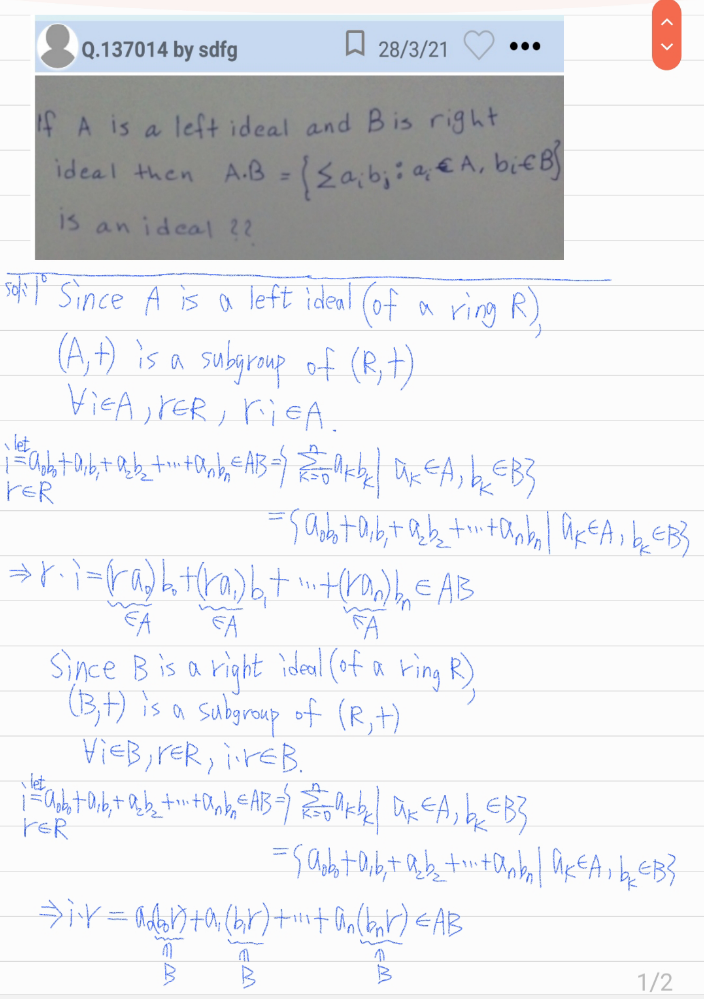 Q.137014 by sdfg 28/3/21
If A is a left ideal and B is right
ideal then A.B = {∑aᵢbⱼ : aᵢ ∈ A, bᵢ ∈ B}
is an ideal ??
sol: 1° Since A is a left ideal (of a ring R),
(A,+) is a subgroup of (R,+)
∀i∈A, r∈R, r·i ∈A.
let
i=a₀b₀+a₁b₁+a₂b₂+⋯+aₙbₙ∈AB={ ∑ₖ₌₀ⁿ aₖbₖ | aₖ∈A, bₖ∈B}
r∈R
={a₀b₀+a₁b₁+a₂b₂+⋯+aₙbₙ | aₖ∈A, bₖ∈B}
⇒ r·i=(ra₀)b₀+(ra₁)b₁+⋯+(raₙ)bₙ∈AB
∈A ∈A ∈A
Since B is a right ideal (of a ring R),
(B,+) is a subgroup of (R,+)
∀i∈B, r∈R, i·r∈B.
let
i=a₀b₀+a₁b₁+a₂b₂+⋯+aₙbₙ∈AB={ ∑ₖ₌₀ⁿ aₖbₖ | aₖ∈A, bₖ∈B}
r∈R
={a₀b₀+a₁b₁+a₂b₂+⋯+aₙbₙ | aₖ∈A, bₖ∈B}
⇒i·r = a₀(b₀r)+a₁(b₁r)+⋯+aₙ(bₙr)∈AB
∩ ∩ ∩
B B B
1/2